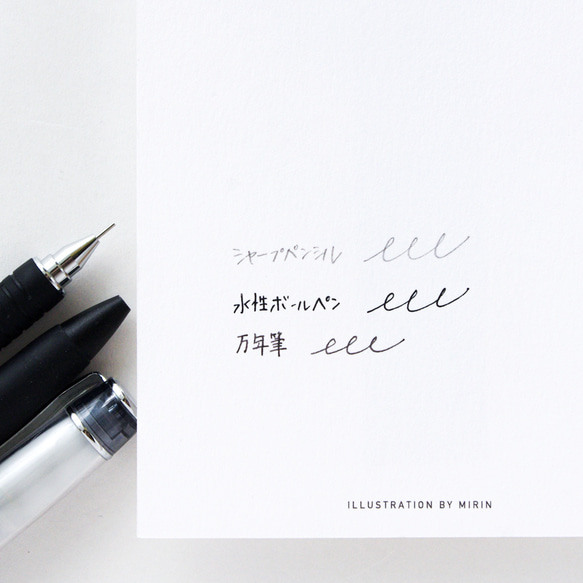 シャープペンシル
水性ボールペン
万年筆
ILLUSTRATION BY MIRIN